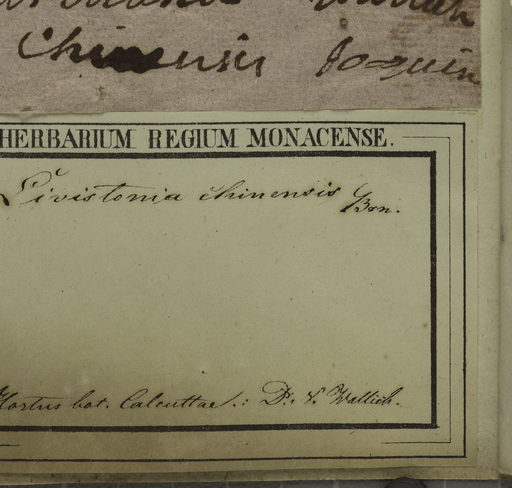 chinensis Jacquin
HERBARIUM REGIUM MONACENSE.
Livistonia chinensis Brn.
Hortus bot. Calcuttae.: D. v. Wallich.